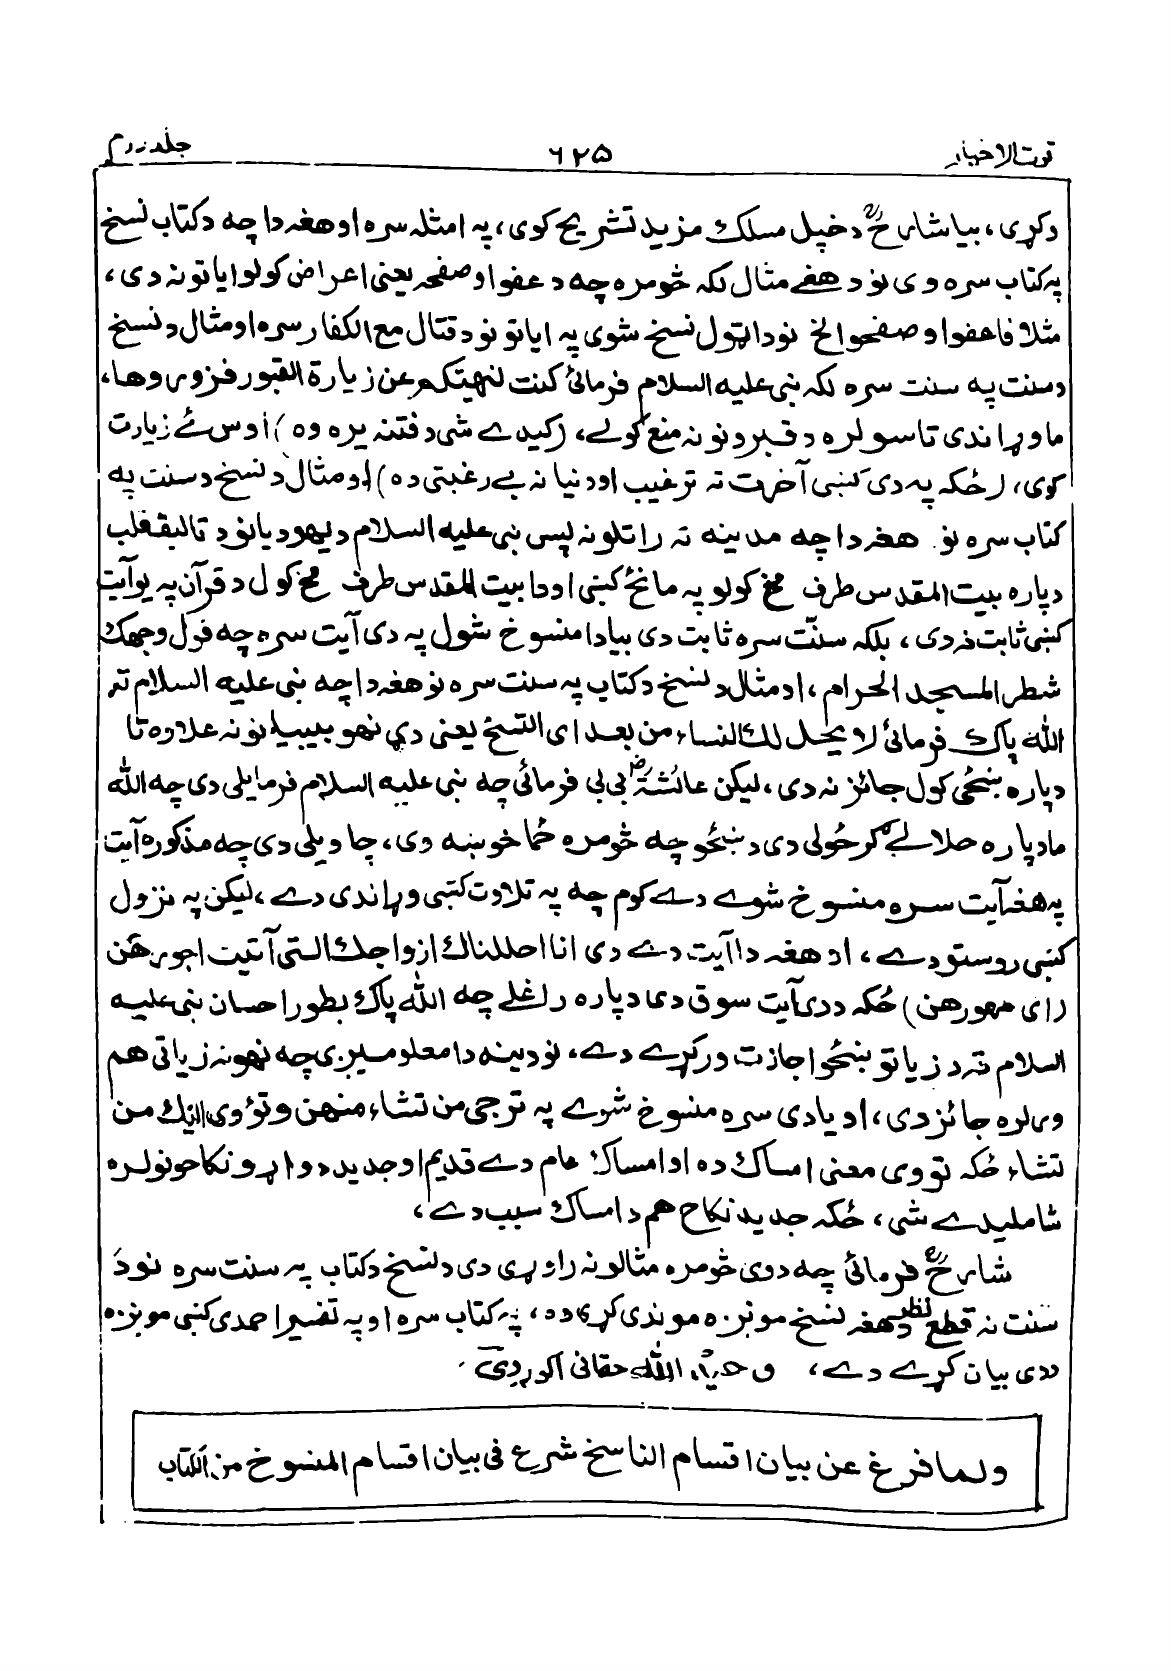 قوت الاخیار ۶۲۵ جلد دوم
دکړی، بیا شارحؒ دخپل مسلک مزید تشریح کوی، په امثله سره او هغه دا چه دکتاب نسخ
په کتاب سره وی نو د هغے مثال لکه څومره چه د عفو او صفحه یعنی اعراض کولو ایاتونه دی،
مثلا فاعفوا وصفحوا الخ نو دا ټول نسخ شوی په ایاتونو د قتال مع الکفار سره او مثال د نسخ
د سنت په سنت سره لکه نبی علیه السلام فرمائ کنت نهیتکم عن زیارة القبور فزوروها،
ما وړاندی تاسو لره د قبرونو نه منع کولے، (کیدے شی د فتنه یره وه) اوس ئے زیارت
کوی، (ځکه په دی کښی آخرت ته ترغیب او دنیا نه بے رغبتی ده) او مثال د نسخ د سنت په
کتاب سره نو هغه دا چه مدینه ته راتلونه پس نبی علیه السلام د یهودیانو د تالیف قلب
دپاره بیت المقدس طرف مخ کولو په مانځهٔ کښی او دا بیت المقدس طرف مخ کول د قرآن په یو آیت
کښی ثابت نه دی، بلکه سنّت سره ثابت دی بیا دا منسوخ شول په دی آیت سره چه فول وجهک
شطر المسجد الحرام، او مثال د نسخ د کتاب په سنت سره نو هغه دا چه نبی علیه السلام ته
الله پاک فرمائ لا یحل لک النساء من بعد ای التسع یعنی دی نهو بیبیانو نه علاوه تا
دپاره ښځی کول جائز نه دی، لیکن عائشهؓ بی بی فرمائی چه نبی علیه السلام فرمایلی دی چه الله
ما دپاره حلالے ګرځولی دی د ښځو چه څومره ځما خوښه وی، چا ویلی دی چه مذکوره آیت
په هغه آیت سره منسوخ شوے دے کوم چه په تلاوت کښی وړاندی دے، لیکن په نزول
کښی روستو دے، او هغه دا آیت دے دی انا احللنا لک ازواجک التی آتیت اجورهن
(ای مهورهن) ځکه دی آیت سوق دی دپاره راغلے چه الله پاک بطور احسان نبی علیه
السلام ته د زیاتو ښځو اجازت ورکړے دے، نو دینه دا معلومیږی چه نهو نه زیاتی هم
ورله جائز دی، او یا دی سره منسوخ شوے په ترجی من تشاء منهن وتؤوی الیک من
تشاء ځکه تووی معنی امساک ده او امساک عام دے قدیم او جدید دواړو نکاحونو لره
شاملیدے شی، ځکه جدید نکاح هم د امساک سبب دے،
شارحؒ فرمائی چه دوی څومره مثالونه راوړی دی د نسخ د کتاب په سنت سره نو دَ
سنت نه قطع نظر د هغه نسخ مونږه موندی کړی ده، په کتاب سره او په تفسیر احمدی کښی مونږه
ددی بیان کړے دے، الله حقانی
ولما فرغ عن بیان اقسام الناسخ شرع فی بیان اقسام المنسوخ من الکتاب